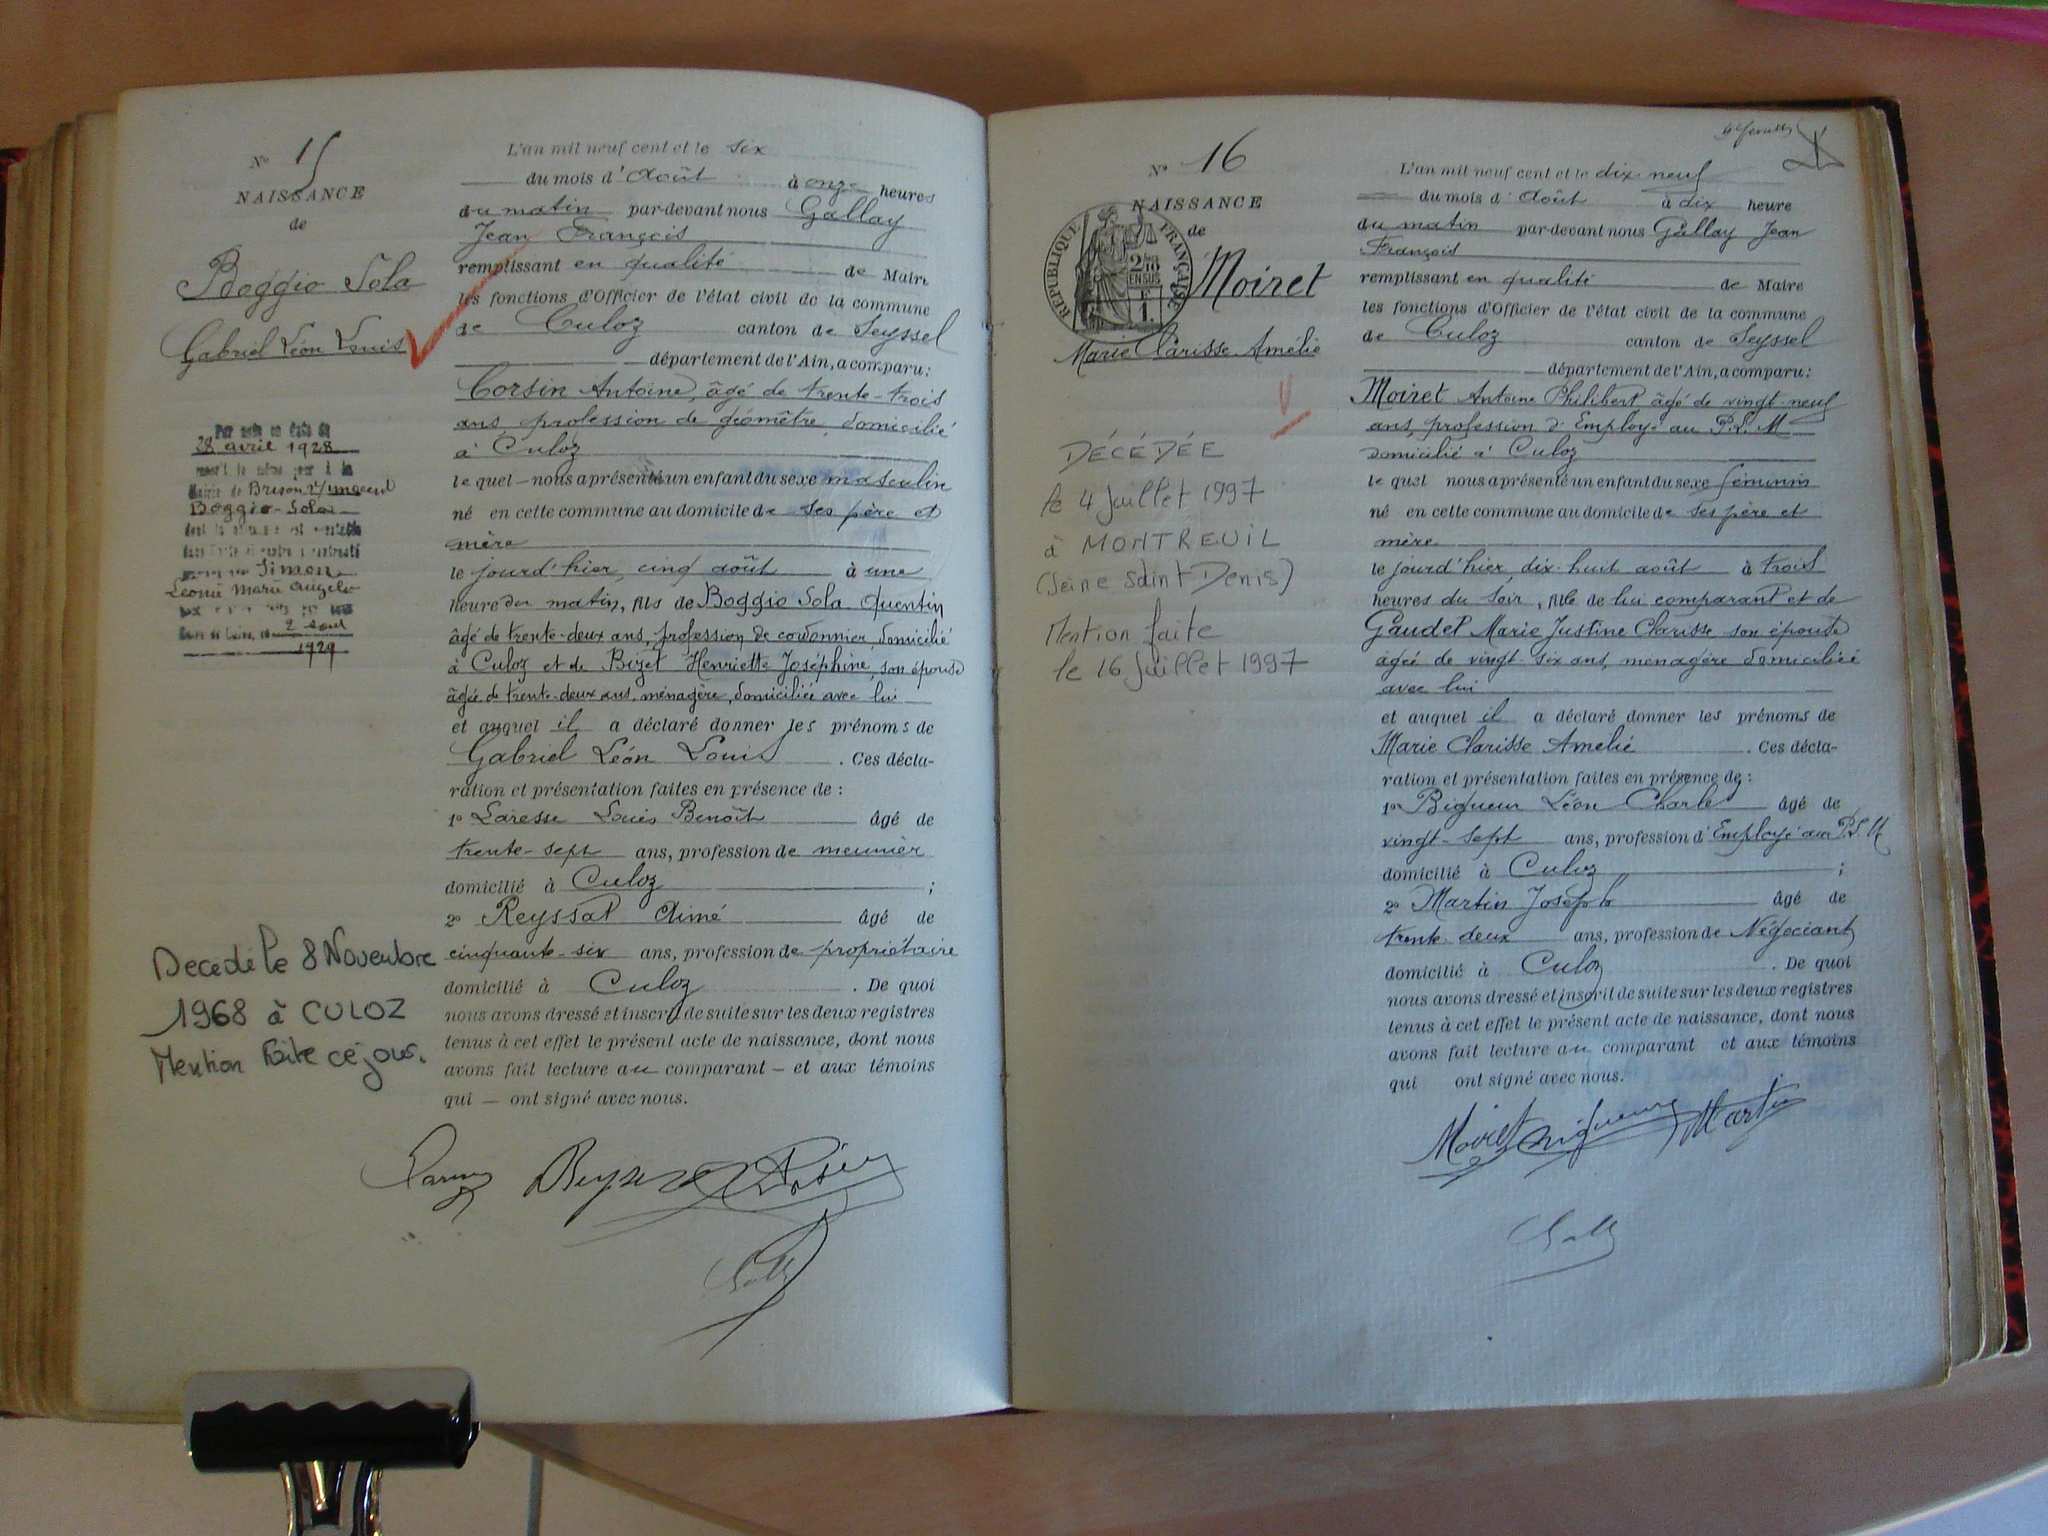 N° 15
NAISSANCE
de
Boggio Sola
Gabriel Léon Louis
Par acte en date du
28 avril 1928
Mairie de Brison St Innocent
Boggio-Sola
Simon
Léonie Marie Angèle
2 aout
1929
Decedé le 8 Novembre
1968 à CULOZ
Mention Faite ce jour.
L'an mil neuf cent et le six
du mois d'Août à onze heures
du matin par-devant nous Gallay
Jean François
remplissant en qualité de Maire
les fonctions d'Officier de l'état civil de la commune
de Culoz canton de Seyssel
département de l'Ain, a comparu:
Corsin Antoine, âgé de trente-trois
ans, profession de géomètre, domicilié
à Culoz
lequel nous a présenté un enfant du sexe masculin
né en cette commune au domicile de ses père et
mère
le jourd'hier, cinq août à une
heure du matin, fils de Boggio Sola Quentin
âgé de trente-deux ans, profession de cordonnier, domicilié
à Culoz et de Bizet Henriette Joséphine, son épouse
âgée de trente-deux ans, ménagère, domiciliée avec lui
et auquel il a déclaré donner les prénoms de
Gabriel Léon Louis. Ces décla-
ration et présentation faites en présence de :
1° Laresse Louis Benoît âgé de
trente-sept ans, profession de meunier
domicilié à Culoz ;
2° Reyssat Aimé âgé de
cinquante-six ans, profession de propriétaire
domicilié à Culoz. De quoi
nous avons dressé et inscrit de suite sur les deux registres
tenus à cet effet le présent acte de naissance, dont nous
avons fait lecture au comparant - et aux témoins
qui - ont signé avec nous.
N° 16
NAISSANCE
de
RÉPUBLIQUE FRANÇAISE
2/10
EN SUS
1
Moiret
Marie Clarisse Amélie
DÉCÉDÉE
le 4 juillet 1997
à MONTREUIL
(Seine Saint Denis)
Mention faite
le 16 juillet 1997
L'an mil neuf cent et le dix neuf
du mois d'Août à dix heure
du matin par-devant nous Gallay Jean
François
remplissant en qualité de Maire
les fonctions d'Officier de l'état civil de la commune
de Culoz canton de Seyssel
département de l'Ain, a comparu:
Moiret Antoine Philibert âgé de vingt-neuf
ans, profession d'Employé au P.L.M
domicilié à Culoz
lequel nous a présenté un enfant du sexe féminin
né en cette commune au domicile de ses père et
mère
le jourd'hier, dix-huit août à trois
heures du soir, fille de lui comparant et de
Gaudet Marie Justine Clarisse son épouse
âgée de vingt-six ans, ménagère domiciliée
avec lui
et auquel il a déclaré donner les prénoms de
Marie Clarisse Amélie. Ces décla-
ration et présentation faites en présence de :
1° Bigueur Léon Charles âgé de
vingt-sept ans, profession d'Employé au P.L.M
domicilié à Culoz ;
2° Martin Joseph âgé de
trente deux ans, profession de Négociant
domicilié à Culoz. De quoi
nous avons dressé et inscrit de suite sur les deux registres
tenus à cet effet le présent acte de naissance, dont nous
avons fait lecture au comparant et aux témoins
qui ont signé avec nous.
Moiret Bigueur Martin